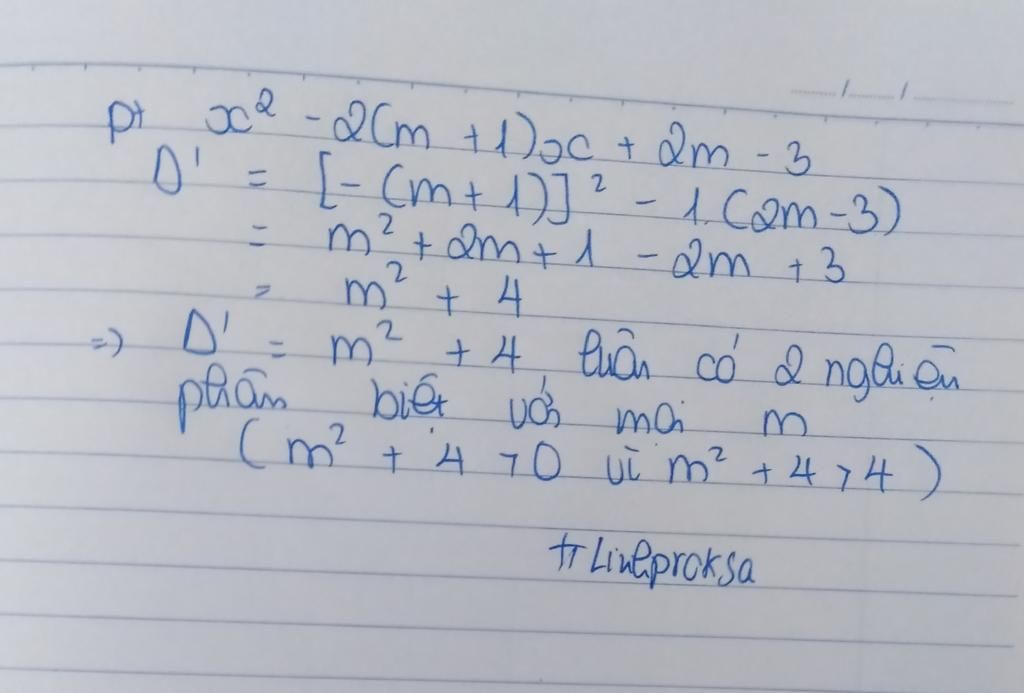 pt x² - 2(m + 1)x + 2m - 3
Δ' = [-(m + 1)]² - 1.(2m - 3)
= m² + 2m + 1 - 2m + 3
= m² + 4
=> Δ' = m² + 4 luôn có 2 nghiệm
phân biệt với mọi m
(m² + 4 > 0 vì m² + 4 > 4)